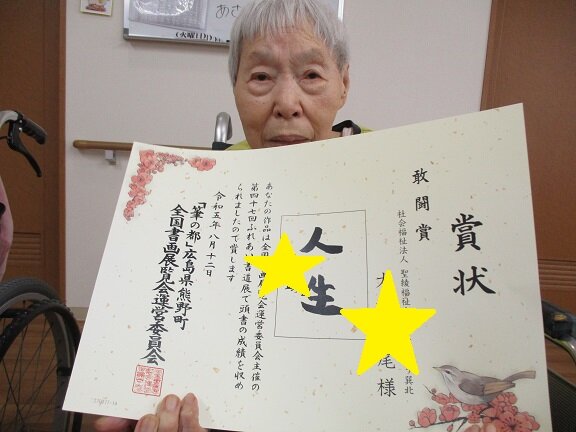 賞状
敢闘賞
社会福祉法人 聖綾福祉
巽北
尾 様
人生
あなたの作品は全国
画展覧会運営委員会主催の
第四十七回ふれあい書道展で頭書の成績を収め
られましたので賞します
令和五年八月十二日
「筆の都」広島県熊野町
全国書画展覧会運営委員会
あさ
(火曜日)